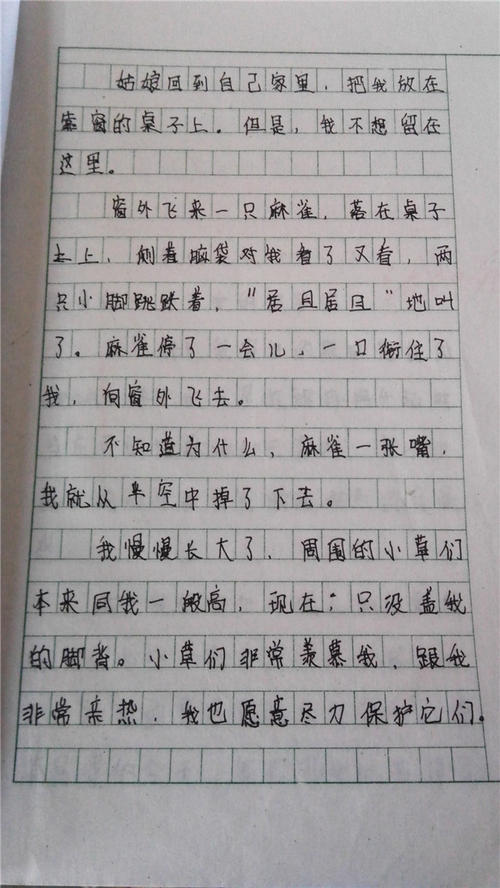 姑娘回到自己家里，把我放在
靠窗的桌子上。但是，我不想留在
这里。
窗外飞来一只麻雀，落在桌子
上，侧着脑袋对我看了又看，两
只小脚跳跌着，“居且居且”地叫
了。麻雀停了一会儿，一口衔住了
我，向窗外飞去。
不知道为什么，麻雀一张嘴，
我就从半空中掉了下去。
我慢慢长大了，周围的小草们
本来同我一般高，现在；只没盖我
的脚背。小草们非常羡慕我，跟我
非常亲热，我也愿意尽力保护它们。